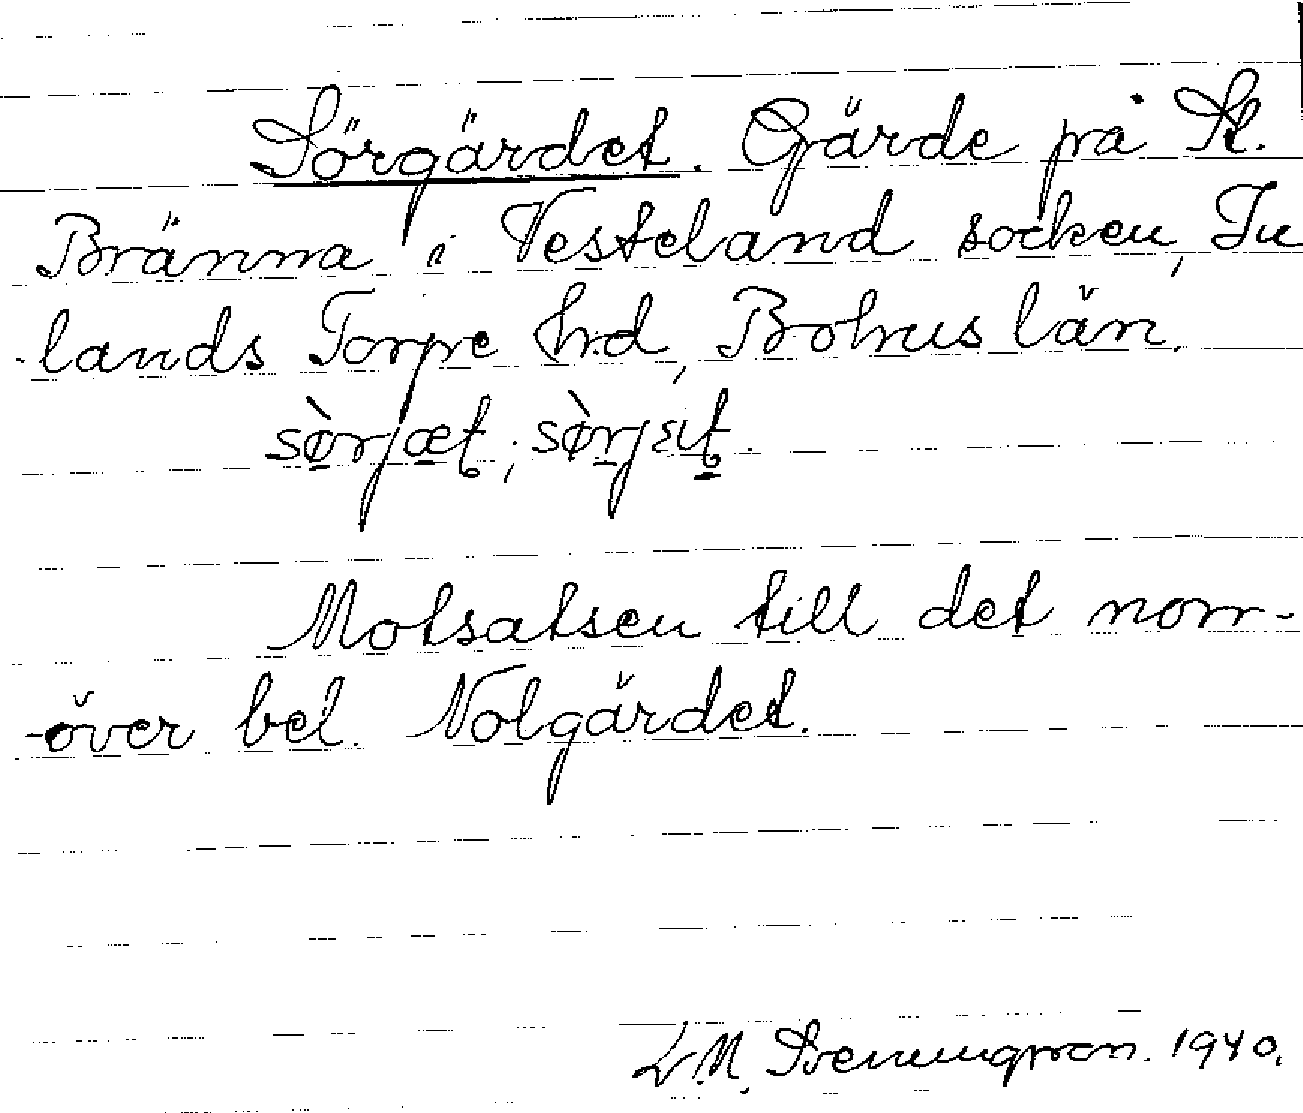 Sörgärdet. Gärde på St.
Bränna i Vesterland socken, In
lands Torpe hrd, Bohus län.
sø̀rjæt; sø̀rjæt.
Motsatsen till det norr-
över bel. Nolgärdet.
1940.